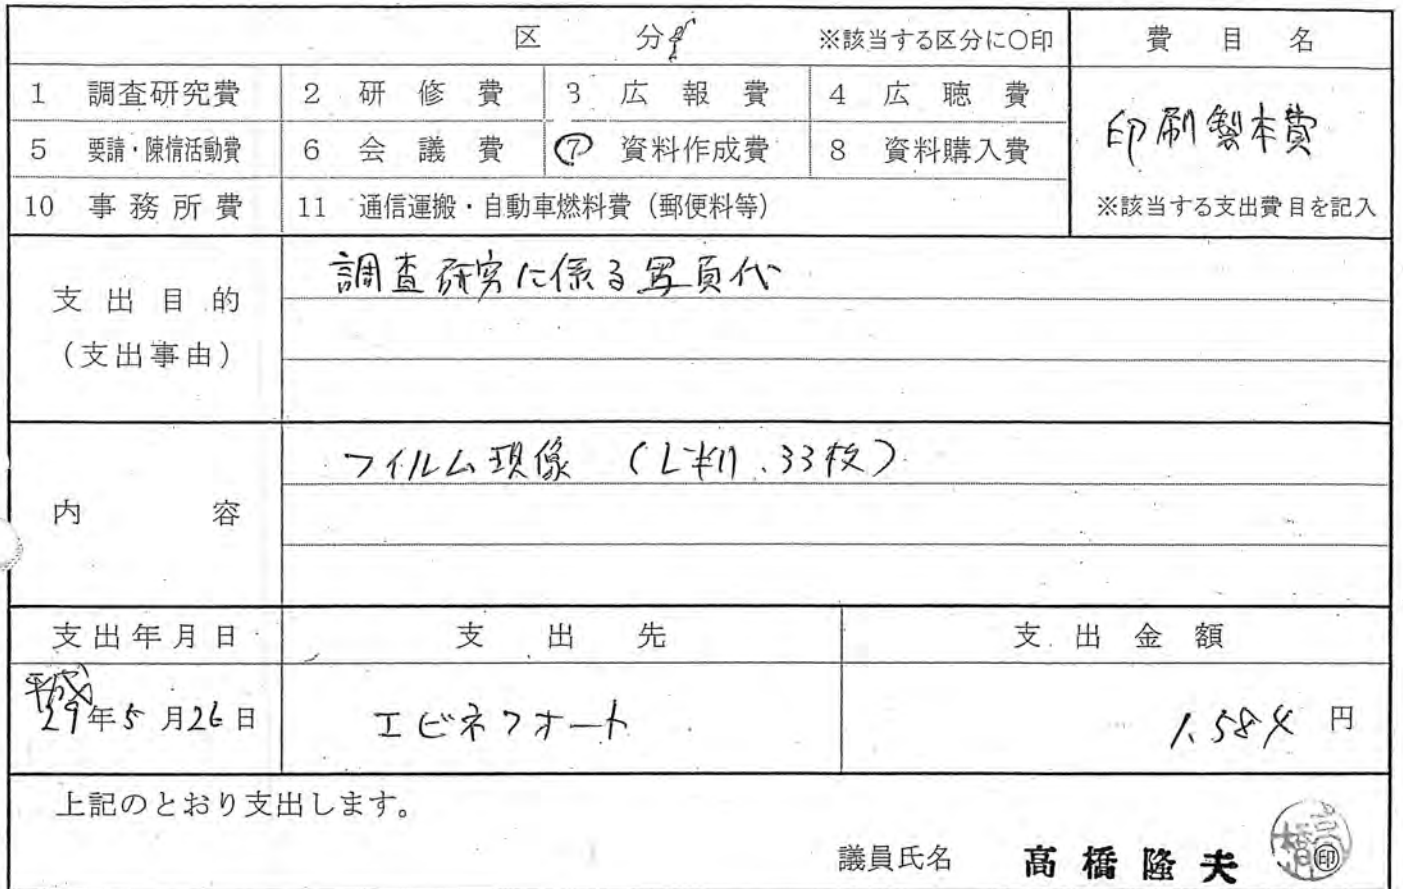 区 分 ※該当する区分に○印 費目名
1 調査研究費 2 研修費 3 広報費 4 広聴費
印刷製本費
5 要請・陳情活動費 6 会議費 ⑦ 資料作成費 8 資料購入費
10 事務所費 11 通信運搬・自動車燃料費（郵便料等） ※該当する支出費目を記入
調査研究に係る写真代
支出目的
（支出事由）
フィルム現像 （L判、33枚）
内容
支出年月日 支出先 支出金額
平成
29年5月26日 エビネフォート 1,584円
上記のとおり支出します。
議員氏名 髙橋隆夫 ㊞